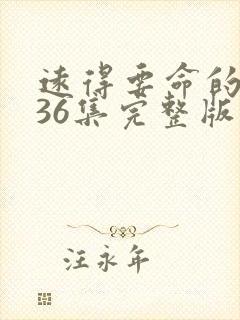 远得要命的
36集完整版
汪永年